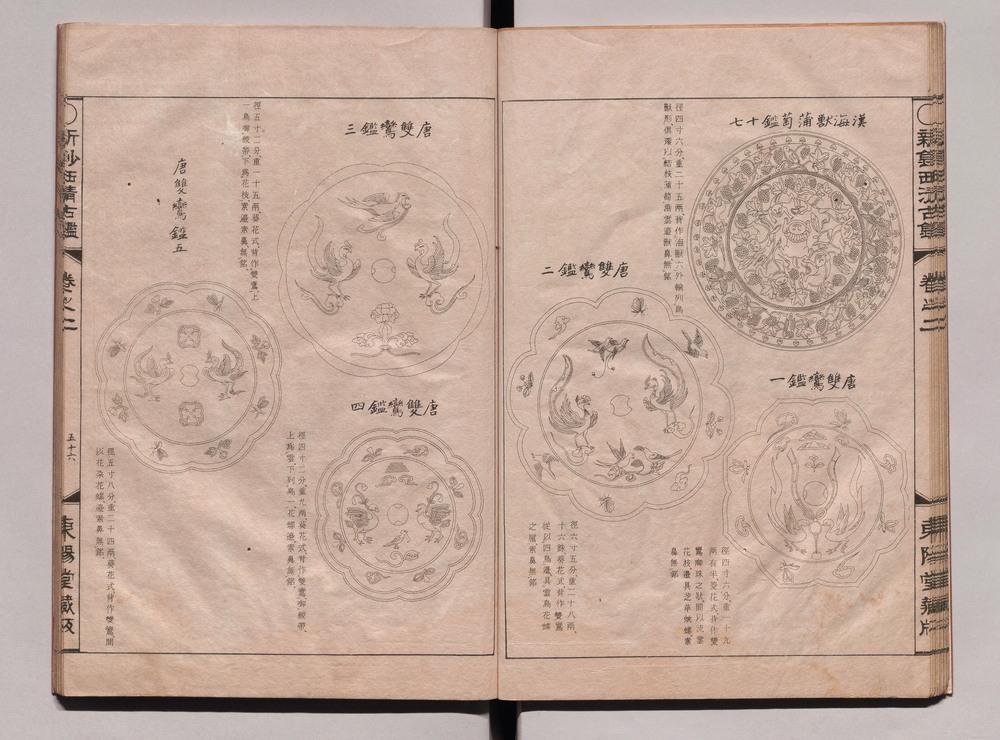 漢海獸蒲萄鑑十七
徑四寸六分重二十五兩背作海獸六外輪列鳥
獸形俱
無銘
唐雙鸞鑑一
徑四寸六分重一十九
兩有半菱花式背作雙
鸞啣珠之狀間以流雲
花枝邊具芝草蛺蝶素
鼻無銘
唐雙鸞鑑二
徑六寸五分重二十八兩
十六銖葵花式背作雙鸞
從以四鳥邊具雲鳥花蝶
之屬素鼻無銘
唐雙鸞鑑三
徑五寸二分重一十五兩葵花式背作雙鸞上
一鳥啣綬帶下為花枝素邊素鼻無銘
唐雙鸞鑑四
徑四寸二分重九兩葵花式背作雙鸞啣綬帶
上為雲下列鳥一花蝶邊素鼻無銘
唐雙鸞鑑五
徑五寸八分重二十四兩葵花式背作雙鸞間
以花朵花蝶邊素鼻無銘
卷之二
五十六
東陽堂藏版